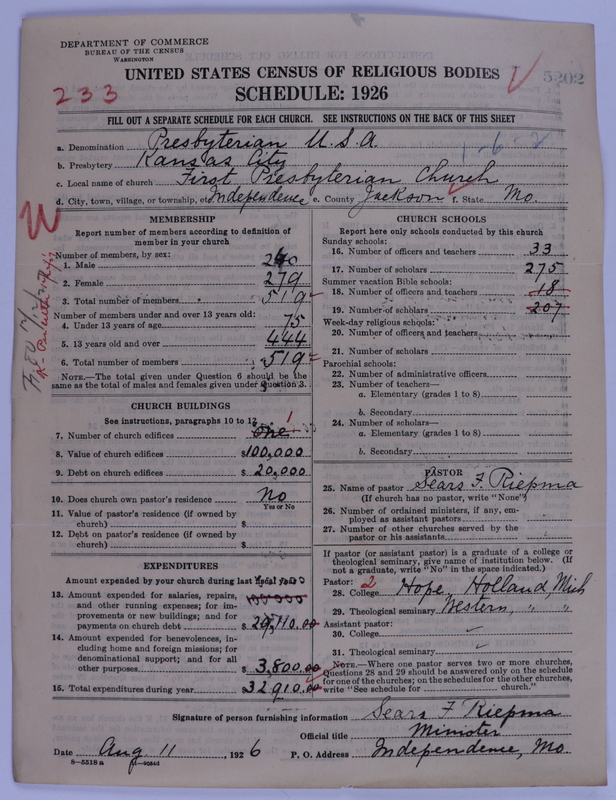 DEPARTMENT OF COMMERCE
BUREAU OF THE CENSUS
WASHINGTON
UNITED STATES CENSUS OF RELIGIOUS BODIES
5202
233
SCHEDULE: 1926
FILL OUT A SEPARATE SCHEDULE FOR EACH CHURCH. SEE INSTRUCTIONS ON THE BACK OF THIS SHEET
a. Denomination Presbyterian U.S.A.
1-6-2
b. Presbytery Kansas City
c. Local name of church First Presbyterian Church
d. City, town, village, or township, etc. Independence e. County Jackson f. State Mo.
W
MEMBERSHIP
Report number of members according to definition of
member in your church
Number of members, by sex:
1. Male 240
2. Female 279
3. Total number of members 519
Number of members under and over 13 years old:
4. Under 13 years of age 75
5. 13 years old and over 444
6. Total number of members 519
NOTE.—The total given under Question 6 should be the
same as the total of males and females given under Question 3.
CHURCH BUILDINGS
See instructions, paragraphs 10 to 12
7. Number of church edifices One 1
8. Value of church edifices $100,000
9. Debt on church edifices $20,000
10. Does church own pastor's residence No
Yes or No
11. Value of pastor's residence (if owned by
church) $
12. Debt on pastor's residence (if owned by
church) $
EXPENDITURES
Amount expended by your church during last fiscal year
13. Amount expended for salaries, repairs,
and other running expenses; for im-
provements or new buildings; and for
payments on church debt $29,110.00
14. Amount expended for benevolences, in-
cluding home and foreign missions; for
denominational support; and for all
other purposes $3,800.00
15. Total expenditures during year $32910.00
CHURCH SCHOOLS
Report here only schools conducted by this church
Sunday schools:
16. Number of officers and teachers 33
17. Number of scholars 275
Summer vacation Bible schools:
18. Number of officers and teachers 18
19. Number of scholars 207
Week-day religious schools:
20. Number of officers and teachers
21. Number of scholars
Parochial schools:
22. Number of administrative officers
23. Number of teachers—
a. Elementary (grades 1 to 8)
b. Secondary
24. Number of scholars—
a. Elementary (grades 1 to 8)
b. Secondary
PASTOR
25. Name of pastor Sears F. Riepma
(If church has no pastor, write "None")
26. Number of ordained ministers, if any, em-
ployed as assistant pastors
27. Number of other churches served by the
pastor or his assistants
If pastor (or assistant pastor) is a graduate of a college or
theological seminary, give name of institution below. (If
not a graduate, write "No" in the space indicated.)
Pastor: 2
28. College Hope, Holland, Mich
29. Theological seminary Western, " "
Assistant pastor:
30. College
31. Theological seminary
NOTE.—Where one pastor serves two or more churches,
Questions 28 and 29 should be answered only on the schedule
for one of the churches; on the schedules for the other churches,
write "See schedule for church."
Signature of person furnishing information Sears F Riepma
Official title Minister
Date Aug 11, 1926 P. O. Address Independence, Mo.
8—5518 a